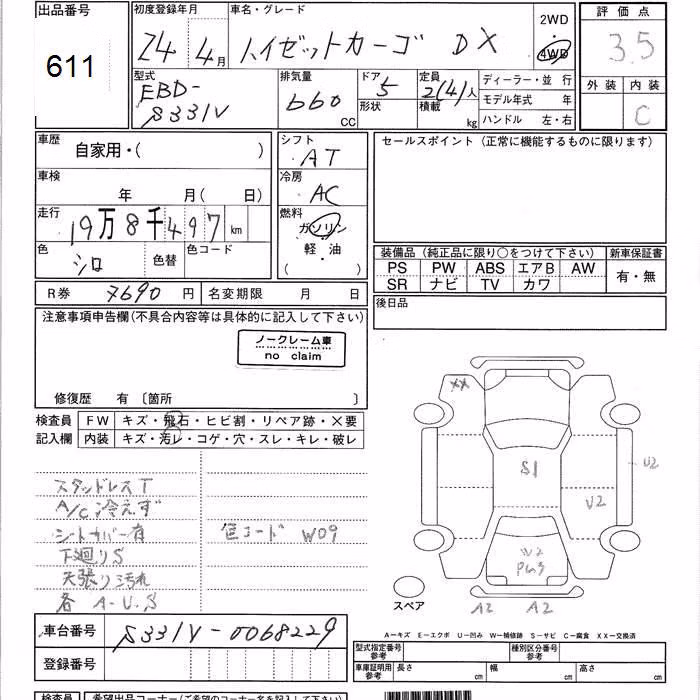 出品番号
611
初度登録年月
24年 4月
車名・グレード
ハイゼットカーゴ DX
2WD
4WD
評価点
3.5
外装 内装
C
型式
EBD-
S331V
排気量
660 CC
ドア
5
形状
定員
2(4)人
積載
kg
ディーラー・並行
モデル年式 年
ハンドル 左・右
車歴
自家用・( )
車検
年 月(日)
走行
19万8千497 km
色
シロ
色替
色コード
シフト
AT
冷房
AC
燃料
ガソリン
軽・油
( )
セールスポイント (正常に機能するものに限ります)
装備品 (純正品に限り○をつけて下さい)
PS PW ABS エアB AW
SR ナビ TV カワ
新車保証書
有・無
後日品
R券 7690 円
名変期限 月 日
注意事項申告欄(不具合内容等は具体的に記入して下さい)
ノークレーム車
no claim
修復歴 有 〔箇所 〕
検査員
記入欄
FW キズ・飛石・ヒビ割・リペア跡・×要
内装 キズ・汚レ・コゲ・穴・スレ・キレ・破レ
スタッドレスT
A/C冷えず
シートカバー有
下廻りS
天張り汚れ
各 A-U.S
色コード W09
XX
S1
U2
U2
スペア
A2 A2
A－キズ E－エクボ U－凹み W－補修跡 S－サビ C－腐食 XX－交換済
車台番号
S331V-0068229
登録番号
型式指定番号
参考
種別区分番号
参考
車庫証明用
参考
長さ cm
幅 cm
高さ cm
検査員
希望出品コーナー(ご希望のコーナー名を